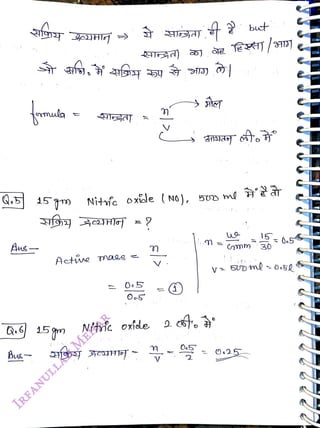 सक्रिय द्रव्यमान ⇒ ये सान्द्रता ही है but
सान्द्रता का वह हिस्सा/भाग
जो अभि० में सक्रिय रूप से भाग ले।
formula = सान्द्रता = n/V
→ मोल
→ आयतन ली० में
Q.5 15 gm Nitric oxide (NO), 500 ml में है तो
सक्रिय द्रव्यमान = ?
Ans — Active mass = n/V
= 0.5/0.5 = 1
n = w/Gmm = 15/30 = 0.5
V = 500 ml = 0.5 l
Q.6 15 gm Nitric oxide 2 ली० में
Ans — सक्रिय द्रव्यमान - n/V - 0.5/2 = 0.25
IRFANULLAH MEHAR